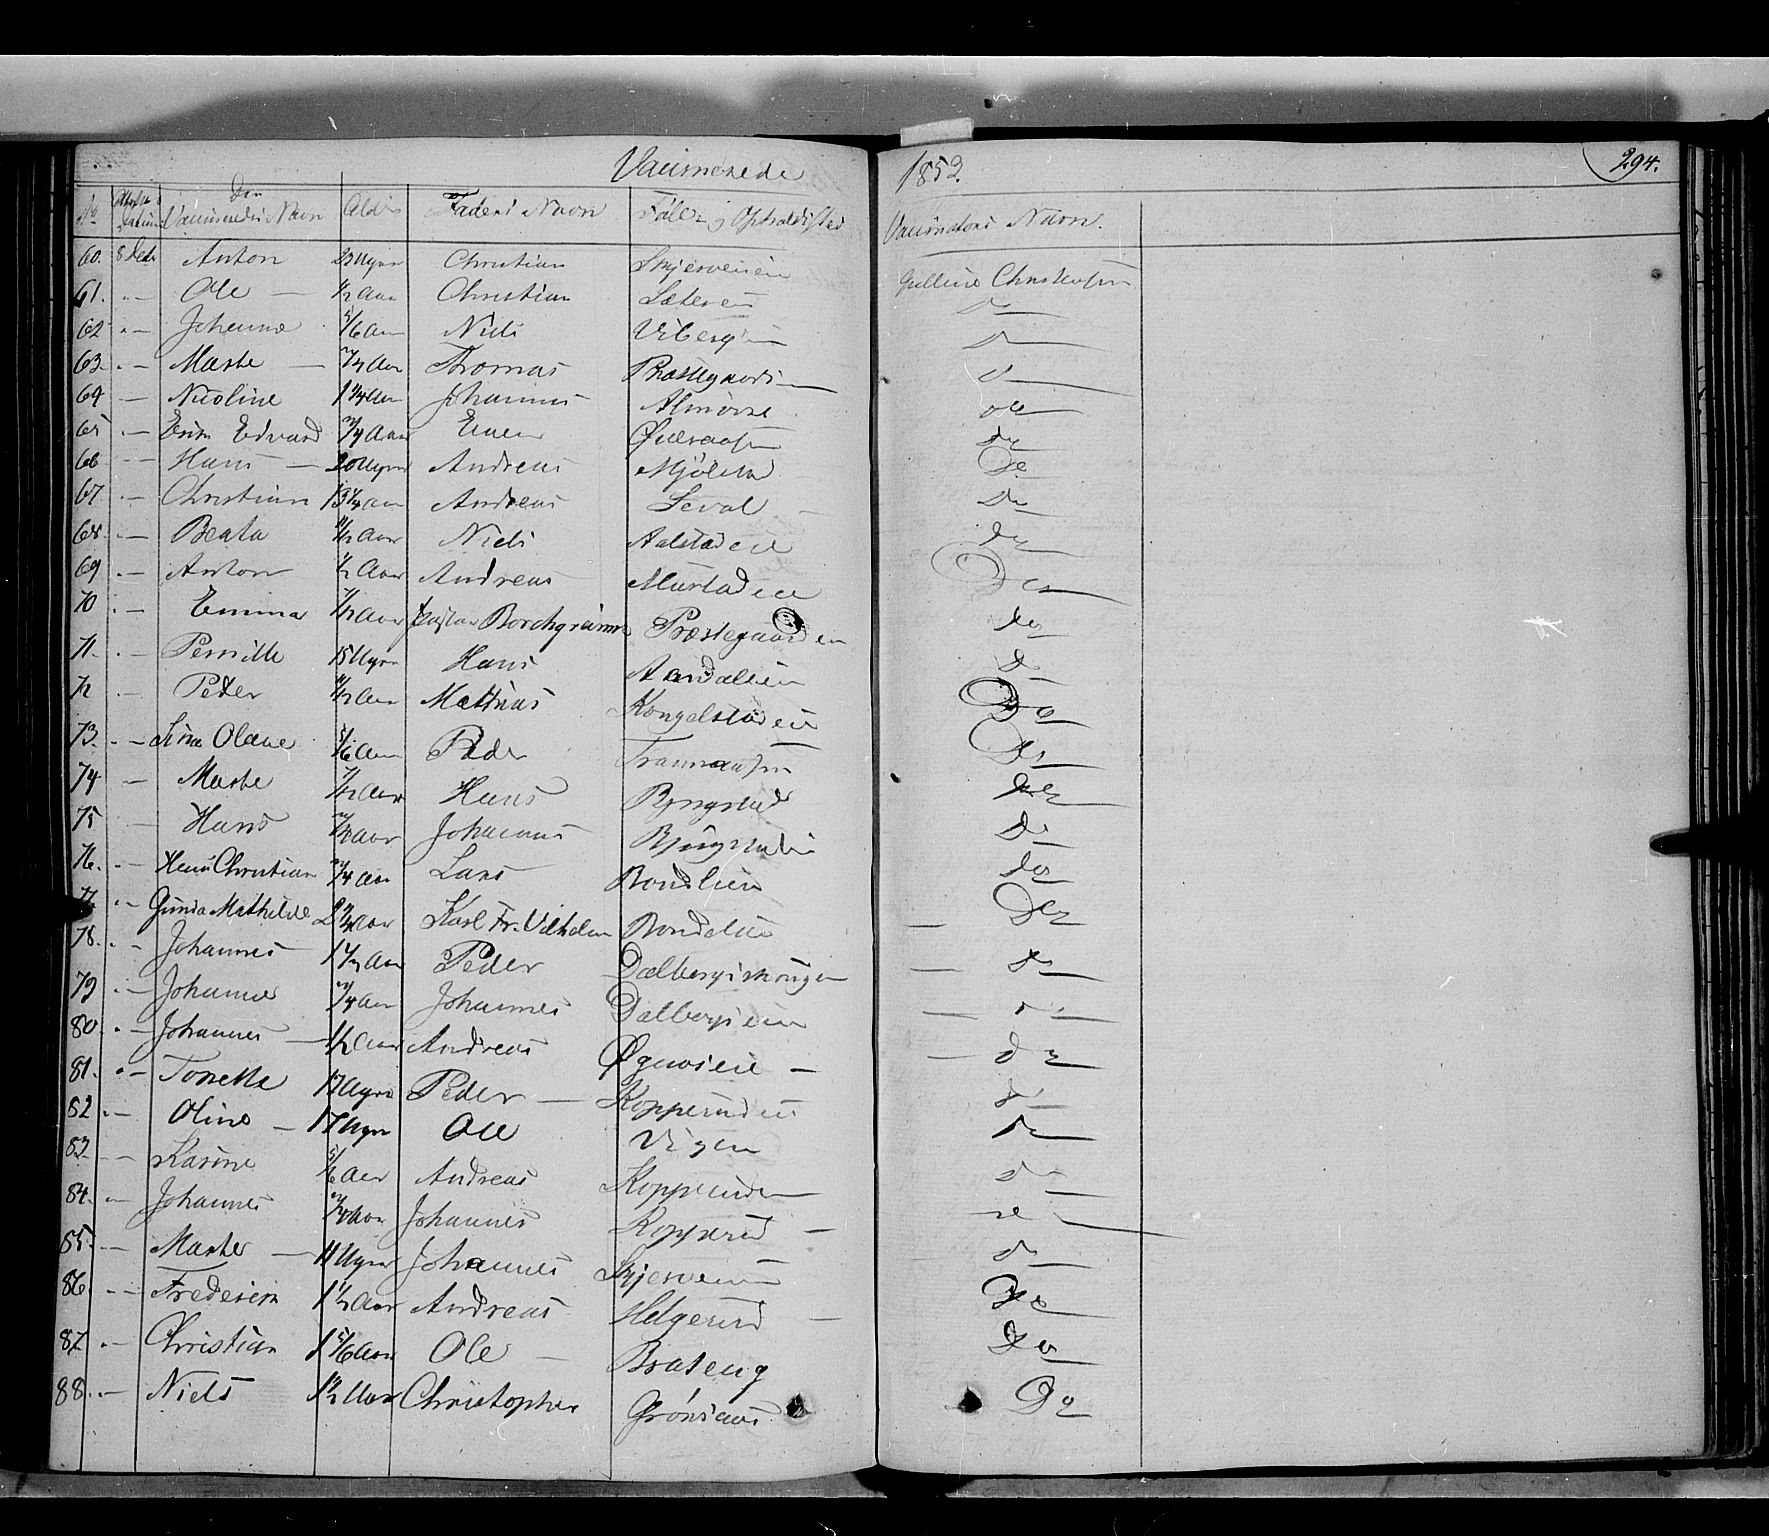 Vaccinerede 1852. 294.
No Attestens Datum Den Vaccineredes Navn Alder Faderens Navn Føde- og Opholdssted Vaccinators Navn.
60. 8 Decbr Anton 23 Uger Christian Skjerveneie Gulline Christensen
61. - Ole 1/2 Aar Christian Sæteren do
62. - Johanne 5/6 Aar Niels Viberg do
63. - Marthe 3/4 Aar Thomas Præstegaards do
64. - Nicoline 1 1/4 Aar Johannes Almöise do
65. - Edvard 3/4 Aar do
66. - Hans 20 Uger Andreas Mjölerud Do
67. - Christian 13 1/4 Aar Andreas Seval Do
68. - Beata 1/2 Aar Niels Aalstadeie do
69. - Anton 1/2 Aar Andreas Mustadeie Do
70. - Emma 1/2 Aar Pastor Borchgrevink Præstegaarden do
71. - Pernille 15 Uger Hans Aandalseie do
72. - Peder 1/2 Aar Mathias Kongelstadeie Do
73. - Olave 5/6 Aar Peder Do
74 - Marthe 1/2 Aar Hans do
75 Hans Aar Johannes Do
76. - Hans Christian 3/4 Aar Lars Bondlien do
77. - Gunda Mathilde 2 3/4 Aar Karl Fr. Vilhelm Bondelien - Do
78. - Johannes 1 1/2 Aar Peder Dalbergiskougen - do
79 - Johanne 3/4 Aar Johannes Dalbergseie - do
80. - Johannes - 1/2 Aar Andreas Øgnoseie - - do
81. - Tonette 17 Uger Peder - Kopperudeie do
82 - Oline - 17 Uger Ole Vigen do
83. - Karine 5/6 Aar Andreas Kopperudeie do
84. - Johannes Aar Johannes Kopperud - do
85. - Marthe - 11 Uger Johannes Skjerveneie do
86. - Frederik 1 1/2 Aar Andreas Helgerud - Do
87. - Christian 1 5/6 Aar Ole - Brateng Do
88. - Niels 1 1/2 Aar Christopher Grönsaas Do